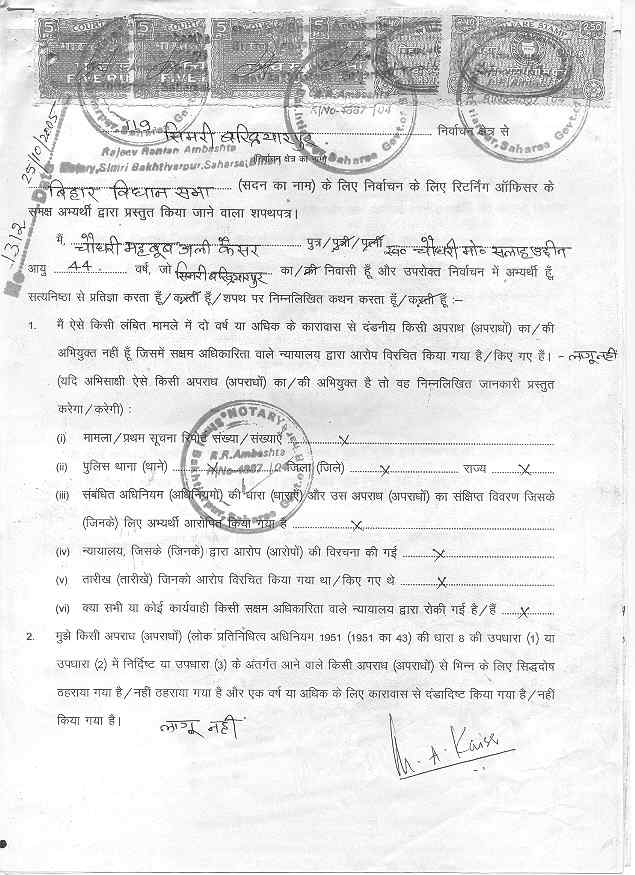 119 सिमरी बख्तियारपुर निर्वाचन क्षेत्र से
(निर्वाचन क्षेत्र का नाम)
Rajeev Ranjan Ambashta
Notary, Simri Bakhtiyarpur, Saharsa
No. 1312 Date 25/10/2005
R.R. Ambashta
R/No-4887/04
बिहार विधान सभा (सदन का नाम) के लिए निर्वाचन के लिए रिटर्निंग ऑफिसर के
समक्ष अभ्यर्थी द्वारा प्रस्तुत किया जाने वाला शपथपत्र।
मैं, चौधरी महबूब अली कैसर पुत्र/पुत्री/पत्नी स्व० चौधरी मो० सलाहउद्दीन
आयु 44 वर्ष, जो सिमरी बख्तियारपुर का/की निवासी हूँ और उपरोक्त निर्वाचन में अभ्यर्थी हूँ,
सत्यनिष्ठा से प्रतिज्ञा करता हूँ/करती हूँ/शपथ पर निम्नलिखित कथन करता हूँ/करती हूँ :–
1. मैं ऐसे किसी लंबित मामले में दो वर्ष या अधिक के कारावास से दंडनीय किसी अपराध (अपराधों) का/की
अभियुक्त नहीं हूँ जिसमें सक्षम अधिकारिता वाले न्यायालय द्वारा आरोप विरचित किया गया है/किए गए हैं। - लागू नहीं
(यदि अभिसाक्षी ऐसे किसी अपराध (अपराधों) का/की अभियुक्त है तो वह निम्नलिखित जानकारी प्रस्तुत
करेगा/करेगी) :
(i) मामला/प्रथम सूचना रिपोर्ट संख्या/संख्याएँ X
(ii) पुलिस थाना (थाने) X जिला (जिले) X राज्य X
(iii) संबंधित अधिनियम (अधिनियमों) की धारा (धाराएँ) और उस अपराध (अपराधों) का संक्षिप्त विवरण जिसके
(जिनके) लिए अभ्यर्थी आरोपित किया गया है X
NOTARY
R.R. Ambashta
R/No-4887/04
(iv) न्यायालय, जिसके (जिनके) द्वारा आरोप (आरोपों) की विरचना की गई X
(v) तारीख (तारीखें) जिनको आरोप विरचित किया गया था/किए गए थे X
(vi) क्या सभी या कोई कार्यवाही किसी सक्षम अधिकारिता वाले न्यायालय द्वारा रोकी गई है/हैं X
2. मुझे किसी अपराध (अपराधों) (लोक प्रतिनिधित्व अधिनियम 1951 (1951 का 43) की धारा 8 की उपधारा (1) या
उपधारा (2) में निर्दिष्ट या उपधारा (3) के अंतर्गत आने वाले किसी अपराध (अपराधों) से भिन्न के लिए सिद्धदोष
ठहराया गया है/नहीं ठहराया गया है और एक वर्ष या अधिक के लिए कारावास से दंडादिष्ट किया गया है/नहीं
किया गया है। लागू नहीं
M. A. Kaisar